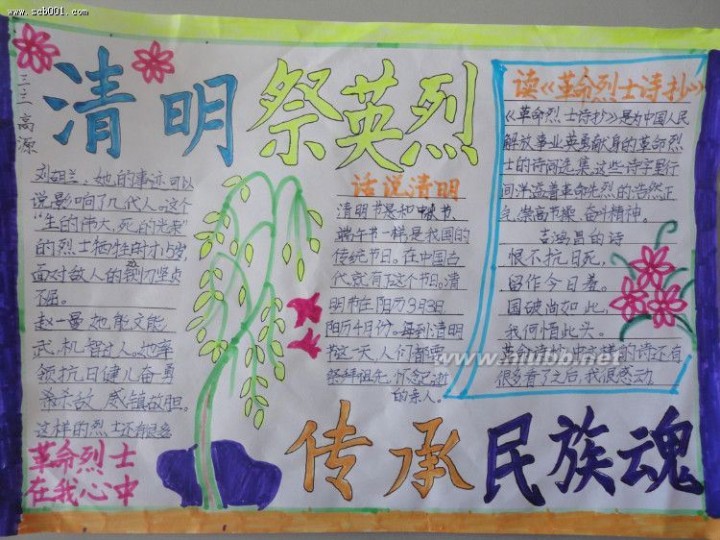 www.scb001.com
三三 高源
清明祭英烈
刘胡兰，她的事迹可以
说影响了几代人。这个
“生的伟大，死的光荣”
的烈士牺牲时才15岁，
面对敌人的
切坚贞
不屈。
赵一曼她能文能
武，机智过人。她率
领抗日健儿奋勇
杀敌，威镇敌胆。
这样的烈士还有很多
革命烈士
在我心中
话说清明
清明节是和中秋节、
端午节一样，是我国的
传统节日。在中国古
代就有了这个节日。清
明节在阳历3月3日
阳历4月份。每到清明
这一天，人们都要
祭拜祖先，怀念逝
的亲人。
读《革命烈士诗抄》
《革命烈士诗抄》是为中国人民
解放事业英勇献身的革命烈
士的诗词选集，这些诗字里行
间洋溢着革命先烈的浩然正
气、崇高节操、奋斗精神。
吉鸿昌的诗
恨不抗日死，
留作今日羞。
国破尚如此，
我何惜此头。
革命
这样的诗还有
很多看了之后，我很感动
www.aibbo.net
传承民族魂